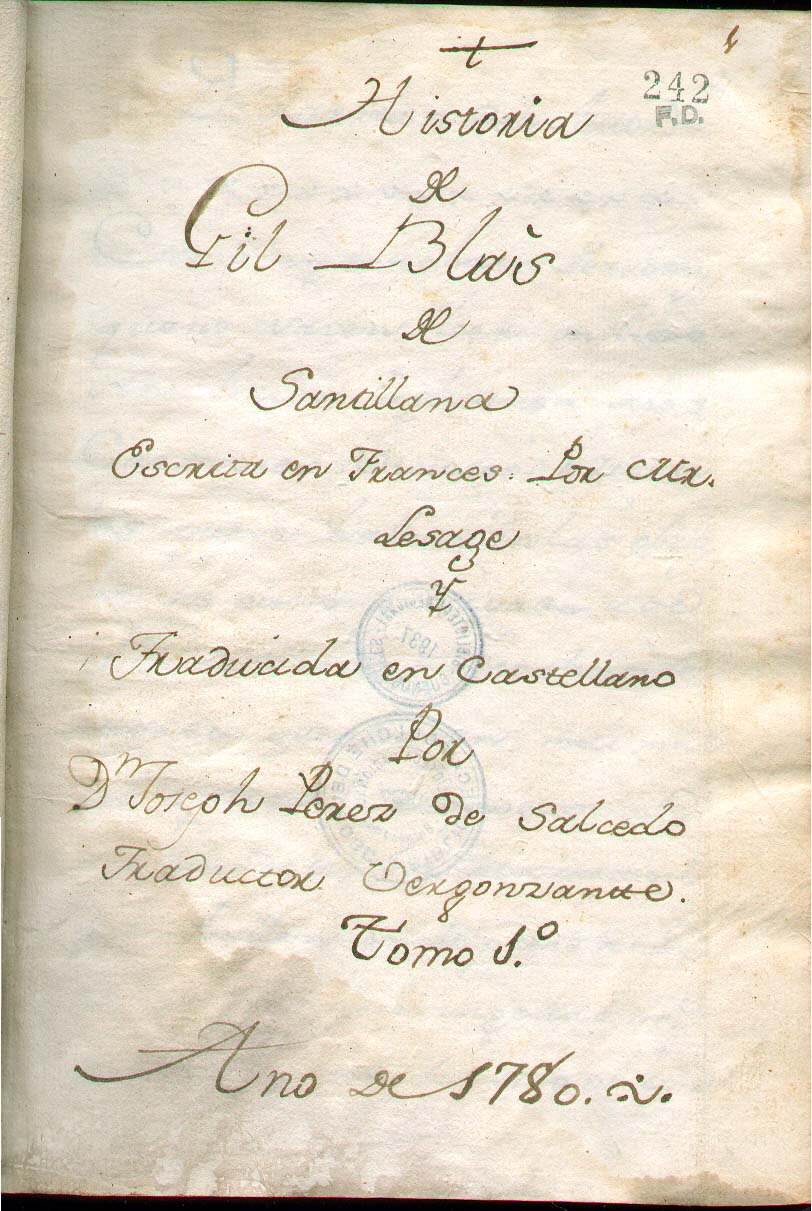 242
F.D.
Historia
de
Gil Blas
de
Santillana
Escrita en Frances. Por Mr.
Lesage
Y
Traducida en Castellano
Por
Dn Joseph Perez de Salcedo
Traductor Vergonzantte.
Tomo 1.º
Ano de 1780.